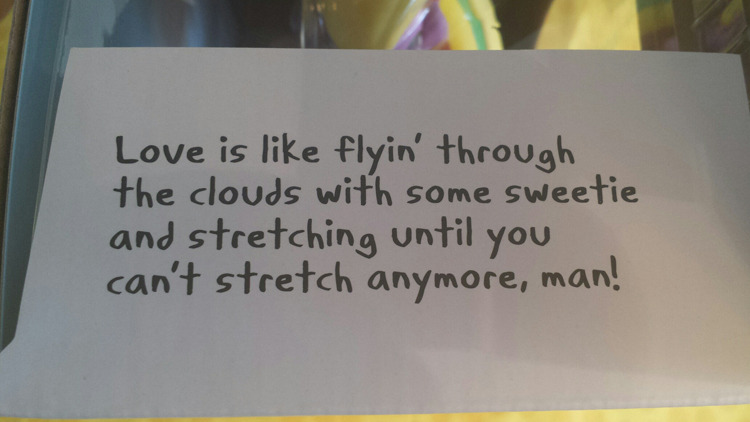 Love is like flyin' through
the clouds with some sweetie
and stretching until you
can't stretch anymore, man!